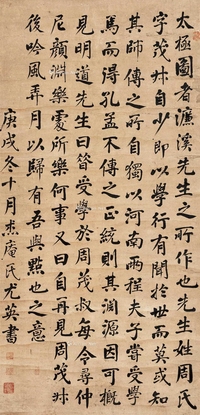 太極圖者濂溪先生之所作也先生姓周氏
字茂叔自少即以學行有聞於世而莫或知
其師傳之所自獨以河南兩程夫子嘗受學
焉而得孔孟不傳之正統則其淵源因可概
見明道先生曰昔受學於周茂叔每令尋仲
尼顏淵樂處所樂何事又曰自再見周茂叔
後吟風弄月以歸有吾與點也之意
庚戌冬十月
尤英書